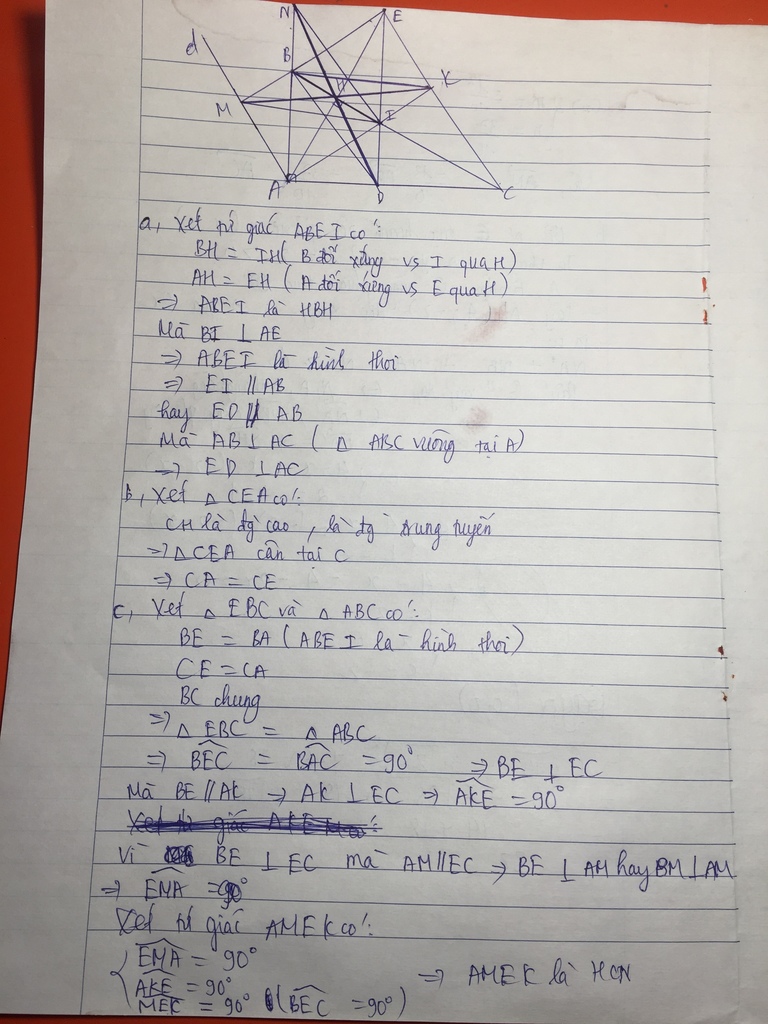 N
E
d
B
K
M
H
I
A
D
C
a, Xét tứ giác ABEI có:
BH = IH ( B đối xứng vs I qua H)
AH = EH ( A đối xứng vs E qua H)
=> ABEI là HBH
Mà BI ⊥ AE
=> ABEI là hình thoi
=> EI // AB
hay ED // AB
Mà AB ⊥ AC ( Δ ABC vuông tại A)
=> ED ⊥ AC
b, Xét Δ CEA có:
CH là đg cao , là đg trung tuyến
=> Δ CEA cân tại C
=> CA = CE
c, Xét Δ EBC và Δ ABC có:
BE = BA ( ABEI là hình thoi)
CE = CA
BC chung
=> Δ EBC = Δ ABC
=> BEC = BAC = 90° => BE ⊥ EC
Mà BE // AK -> AK ⊥ EC => AKE = 90°
Xét tứ giác AKE có:
Vì BE ⊥ EC mà AM // EC => BE ⊥ AM hay BM ⊥ AM
=> EMA = 90°
Xét tứ giác AMEK có:
EMA = 90°
AKE = 90° => AMEK là HCN
MEK = 90° (BEC = 90°)